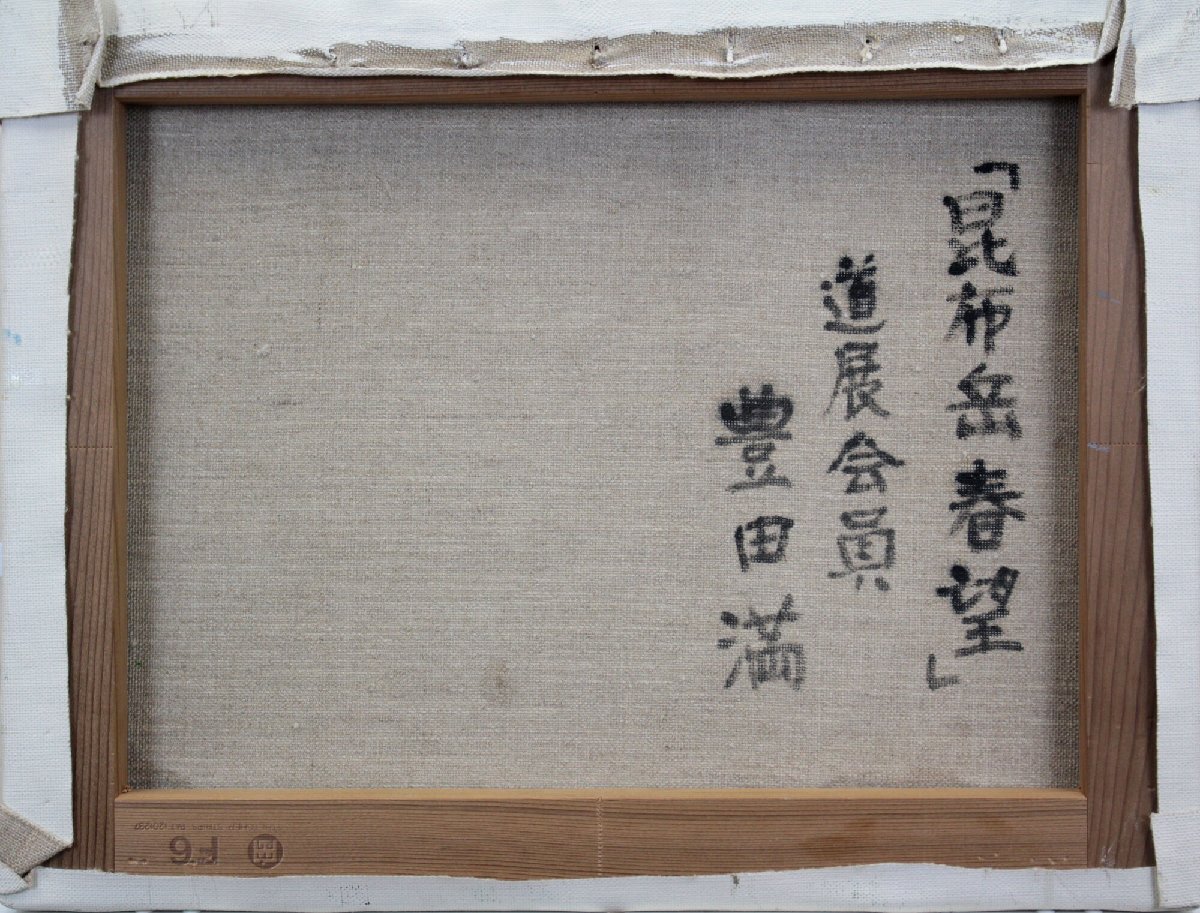 「昆布岳春望」
道展会員
豊田満
F6